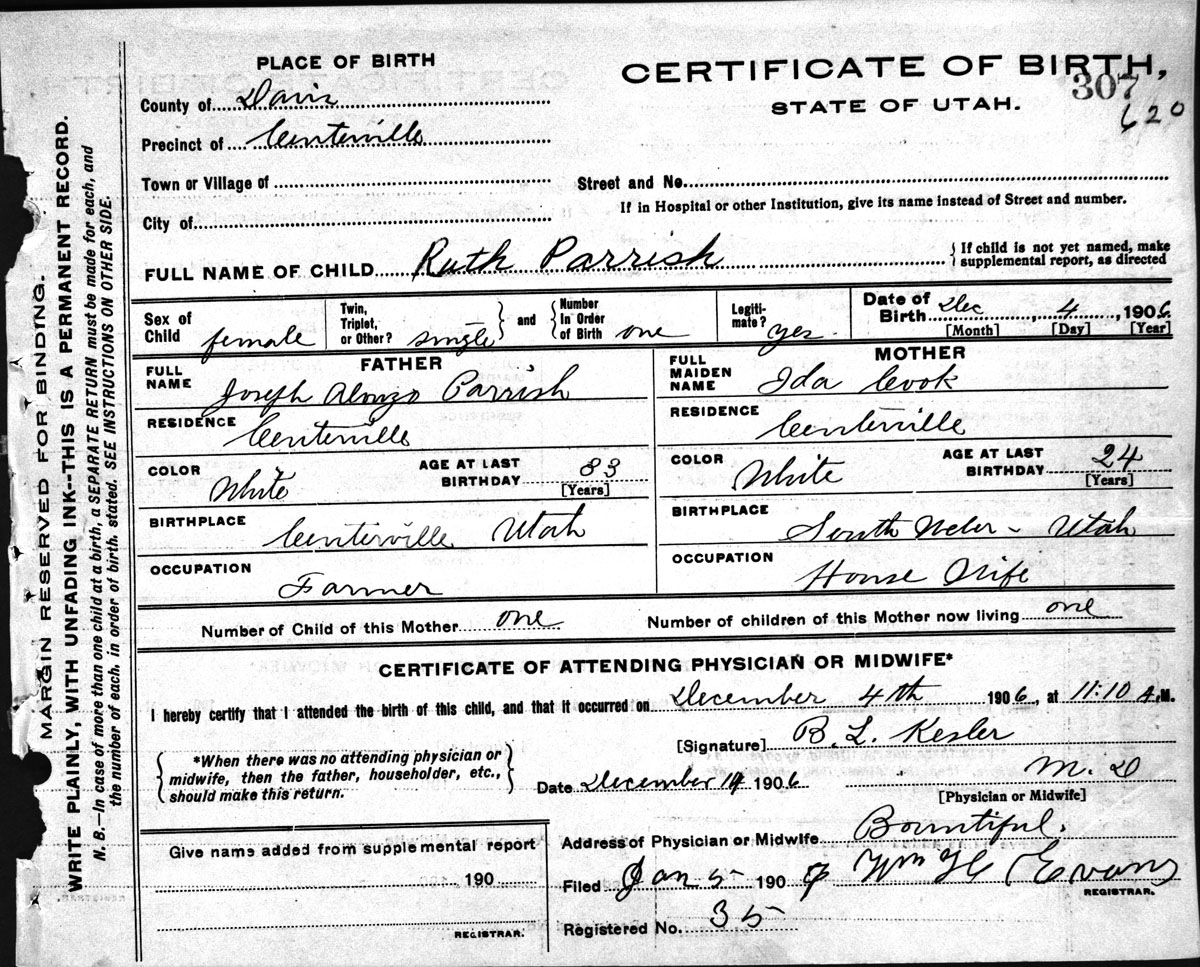 PLACE OF BIRTH
CERTIFICATE OF BIRTH,
STATE OF UTAH.
307
620
County of Davis
Precinct of Centerville
Town or Village of
Street and No.
City of
If in Hospital or other Institution, give its name instead of Street and number.
FULL NAME OF CHILD Ruth Parrish
{If child is not yet named, make
supplemental report, as directed
Sex of Child female
Twin, Triplet, or Other? single
and
Number In Order of Birth one
Legiti-mate? yes
Date of Birth Dec, 4, 1906
[Month] [Day] [Year]
FATHER
MOTHER
FULL NAME Joseph Alonzo Parrish
FULL MAIDEN NAME Ida Cook
RESIDENCE Centerville
RESIDENCE Centerville
COLOR White
AGE AT LAST BIRTHDAY 33 [Years]
COLOR White
AGE AT LAST BIRTHDAY 24 [Years]
BIRTHPLACE Centerville Utah
BIRTHPLACE South Weber - Utah
OCCUPATION Farmer
OCCUPATION House Wife
Number of Child of this Mother one
Number of children of this Mother now living one
CERTIFICATE OF ATTENDING PHYSICIAN OR MIDWIFE*
I hereby certify that I attended the birth of this child, and that it occurred on December 4th 1906, at 11:10 A.M.
[Signature] B. L. Kesler
{*When there was no attending physician or
midwife, then the father, householder, etc.,
should make this return.}
Date December 14 1906
M. D
[Physician or Midwife]
Give name added from supplemental report
190
REGISTRAR.
Address of Physician or Midwife Bountiful.
Filed Jan 5 1907 Wm H Evans
REGISTRAR.
Registered No. 35
MARGIN RESERVED FOR BINDING.
WRITE PLAINLY, WITH UNFADING INK--THIS IS A PERMANENT RECORD.
N. B.—In case of more than one child at a birth, a SEPARATE RETURN must be made for each, and
the number of each, in order of birth, stated. SEE INSTRUCTIONS ON OTHER SIDE.